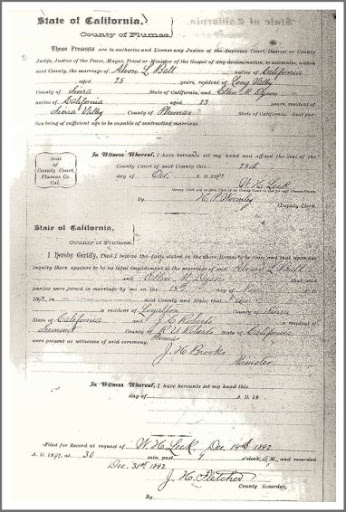 State of California,
County of Plumas.
These Presents are to authorize and License any Justice of the Supreme Court, District or County
Judge, Justice of the Peace, Mayor, Priest or Minister of the Gospel of any denomination, to solemnize, within
said County, the marriage of L. Ball native of California
aged 25 years, resident of Long Valley
County of Sierra State of California and Ellen M.
native of California aged 23 years, resident of
Sierra Valley County of Plumas State of California. Said par-
ties being of sufficient age to be capable of contracting marriage.
Seal
of
County Court,
Plumas Co.
Cal.
In Witness Whereof, I have hereunto set my hand and affixed the Seal of the
County Court of said County this 23rd
day of Oct. A. D.
W. H. Leek
H. P. Wormley
Deputy Clerk.
State of California.
County of Plumas.
I hereby Certify, That I believe the facts stated in the above License to be true, and that upon due
inquiry there appears to be no legal impediment to the marriage of said L. Ball
and Ellen M. that said
parties were joined in marriage by me on the 18th day of Nov
189 in said County and State; that
a resident of Loyalton County of Sierra
State of California and J. C. Roberts a resident of
Summit County of Plumas State of California,
were present as witnesses of said ceremony.
J. H. Brooks
Minister
In Witness Whereof, I have hereunto set my hand this
day of A. D. 18
Filed for Record at request of W. H. Leek, Dec. 14th 1892
A. D. 1892, at 30 min. past 9 o'clock M., and recorded
Dec. 31st 1892
J. H. Fletcher
County Recorder.
By